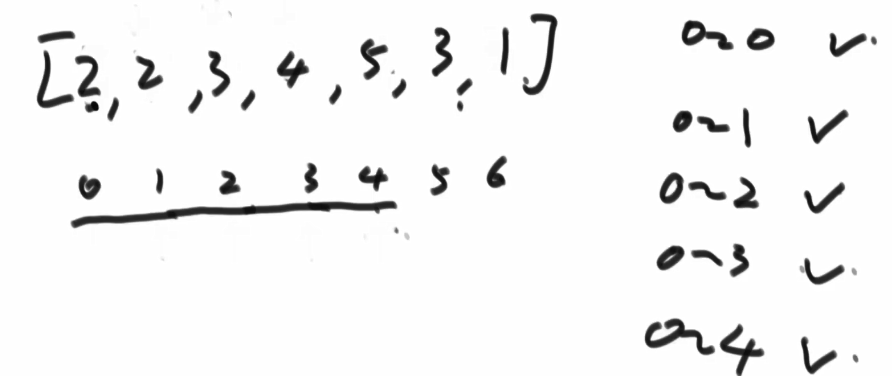 [2, 2, 3, 4, 5, 3, 1]
0 1 2 3 4 5 6
0~0 ✓.
0~1 ✓
0~2 ✓
0~3 ✓.
0~4 ✓.